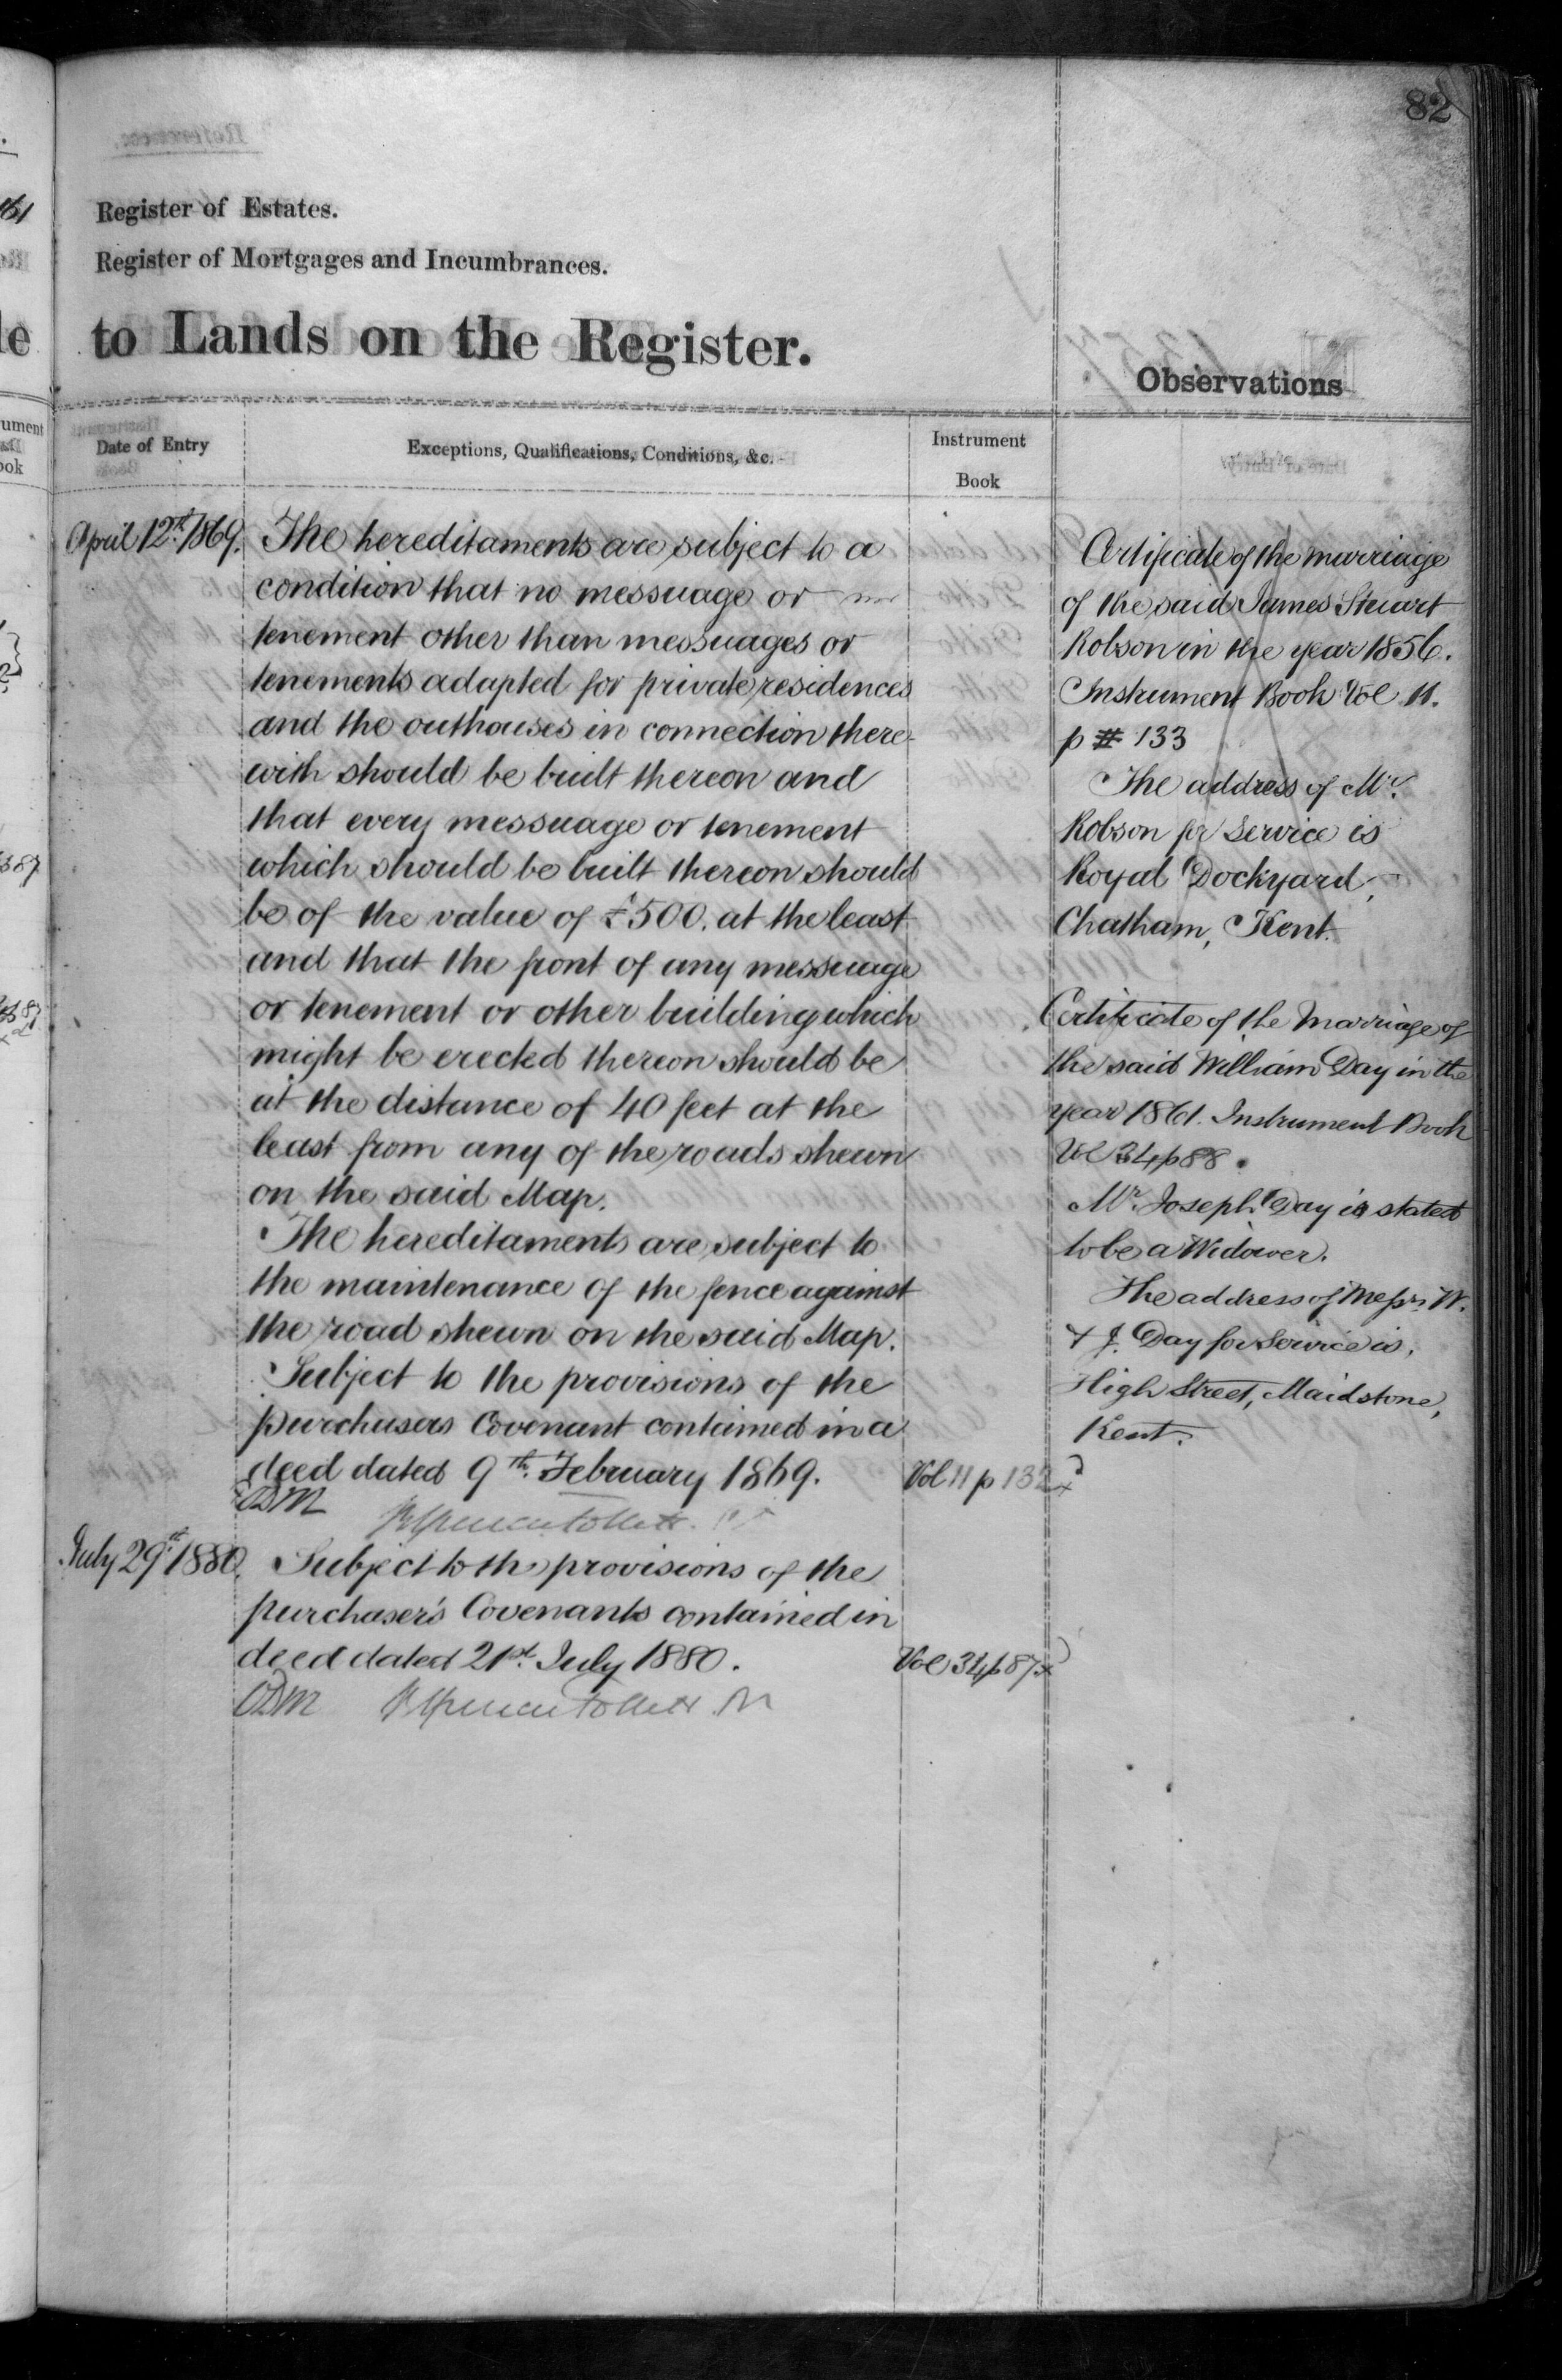 82
Register of Estates.
Register of Mortgages and Incumbrances.
to Lands on the Register.
Observations
Date of Entry
Exceptions, Qualifications, Conditions, &c.
Instrument
Book
April 12th. 1869.
The hereditaments are subject to a
condition that no messuage or
tenement other than messuages or
tenements adapted for private residences
and the outhouses in connection there-
with should be built thereon and
that every messuage or tenement
which should be built thereon should
be of the value of £500. at the least
and that the front of any messuage
or tenement or other building which
might be erected thereon should be
at the distance of 40 feet at the
least from any of the roads shewn
on the said Map.
The hereditaments are subject to
the maintenance of the fence against
the road shewn on the said Map.
Subject to the provisions of the
purchasers Covenant contained in a
deed dated 9th. February 1869.
Vol 11 p 132
July 29th 1880.
Subject to the provisions of the
purchaser's Covenants contained in
deed dated 21st. July 1880.
Vol 34 p 87
Certificate of the marriage
of the said James Stewart
Robson in the year 1856.
Instrument Book Vol 11.
p 133
The address of Mr.
Robson for service is
Royal Dockyard,
Chatham, Kent.
Certificate of the Marriage of
the said William Day in the
year 1861. Instrument Book
Vol 34 p 88.
Mr. Joseph Day is stated
to be a Widower.
The address of Messrs. W.
& J. Day for Service is,
High Street, Maidstone,
Kent.